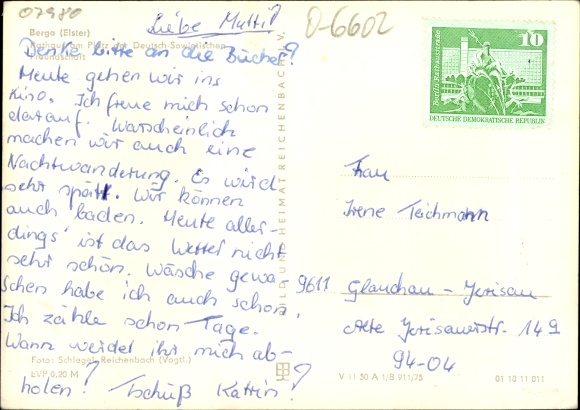 07980
Liebe Mutti!
O-6602
Berga (Elster)
Rathaus am Platz der Deutsch-Sowjetischen
Freundschaft
Denke bitte an die Bücher?
Heute gehen wir ins
Kino. Ich freue mich schon
darauf. Warscheinlich
machen wir auch eine
Nachtwanderung. Es wird
sehr spät. Wir können
auch baden. Heute aller-
dings ist das Wetter nicht
sehr schön. Wäsche gewa-
schen habe ich auch schon.
Ich zähle schon Tage.
Wann werdet ihr mich ab-
holen? Tschüß Katrin!
Foto: Schlegel, Reichenbach (Vogtl.)
EVP 0,20 M
BILD UND HEIMAT REICHENBACH I. V.
10
Berlin Rathausstraße
DEUTSCHE DEMOKRATISCHE REPUBLIK
Frau
Irene Teichmann
9611 Glauchau - Jerisau
Alte Jerisauerstr. 149
94-04
V 11 50 A 1/B 911/75
01 10 11 011